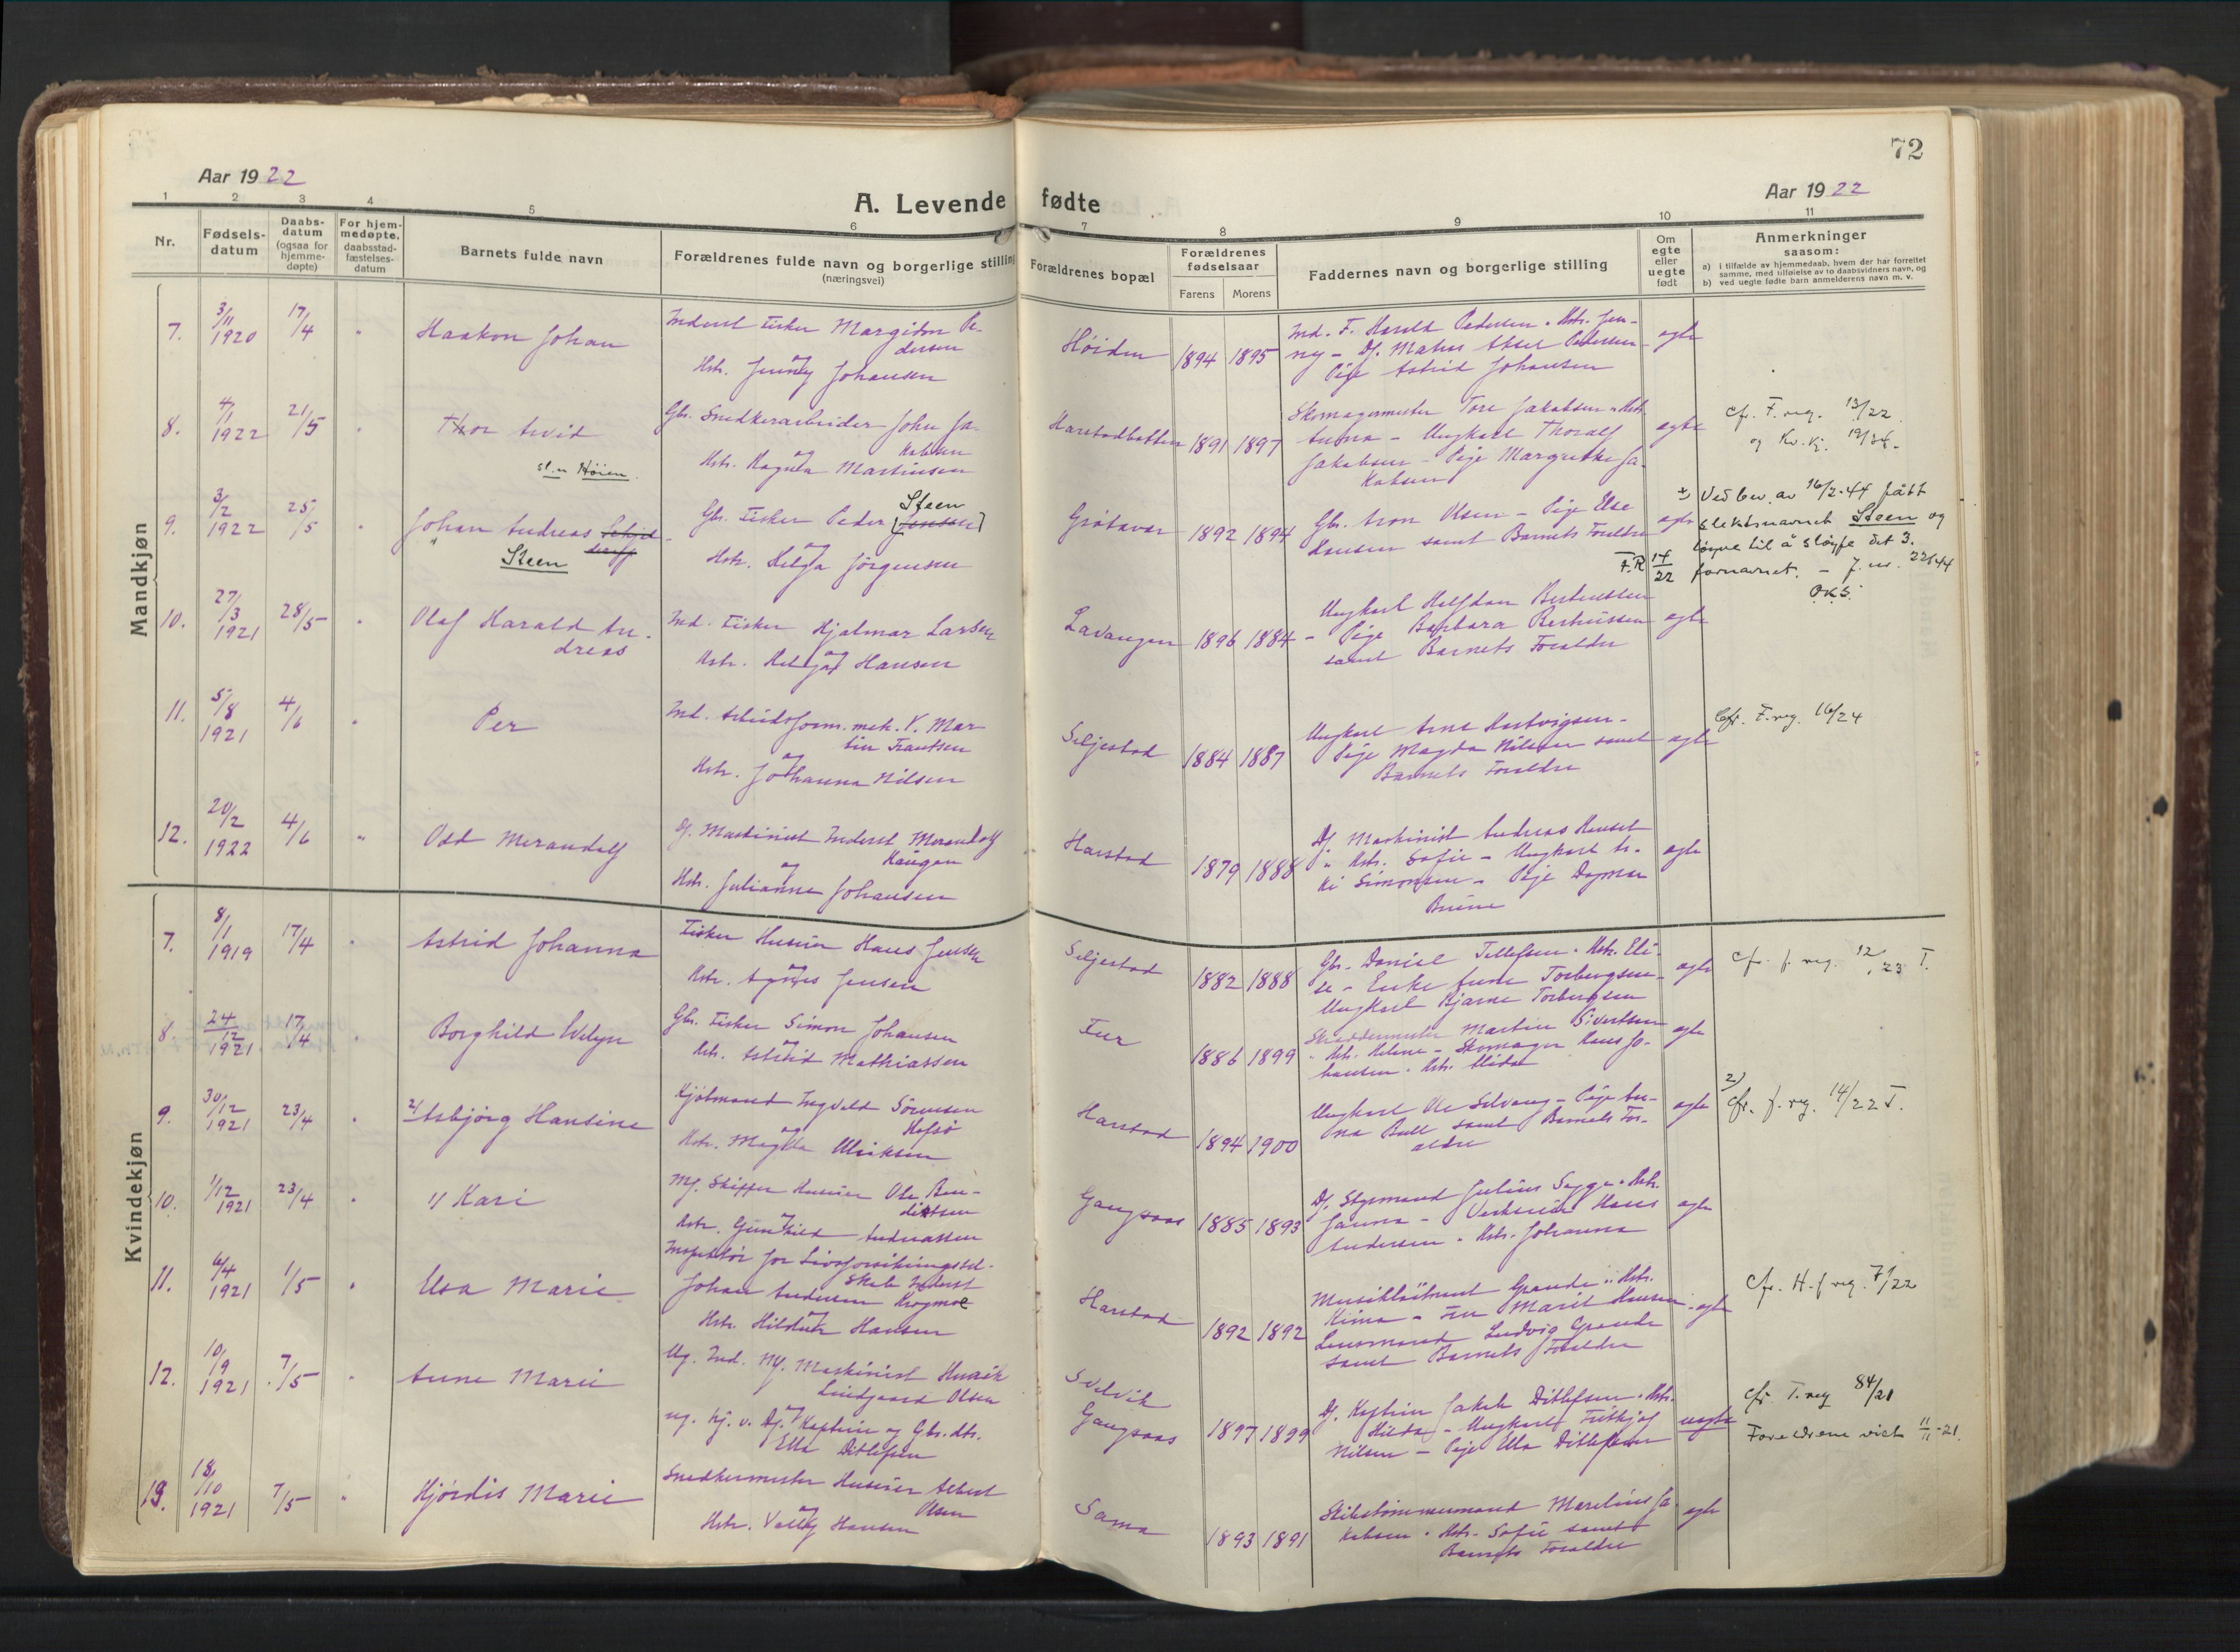 72
Aar 1922
Aar 1922
A. Levende fødte
1 2 3 4 5 6 7 8 9 10 11
Nr.
Fødsels-
datum
Daabs-
datum
(ogsaa for
hjemme-
døpte)
For hjem-
medøpte,
daabsstad-
fæstelses-
datum
Barnets fulde navn
Forældrenes fulde navn og borgerlige stilling
(næringsvei)
Forældrenes bopæl
Forældrenes
fødselsaar
Farens Morens
Faddernes navn og borgerlige stilling
Om
egte
eller
uegte
født
Anmerkninger
saasom:
a) i tilfælde av hjemmedaab, hvem der har forrettet
samme, med tilføielse av to daabsvidners navn, og
b) ved uegte fødte barn anmelderens navn m. v.
Mandkjøn
7. 3/11 1920 17/4 " Haakon Johan
Inderst Fisker Margidon Pe-
dersen
og
Hstr. Jenny Johansen
Høiden 1894 1895
Ind. F. Harald Pedersen . Hstr. Jen-
ny - Dj. Matros Aksel Pedersen
Pige Astrid Johansen
egte
8. 4/1 1922 21/5 " Thor Arvid
sl.n Høien
Gbr. Snedkerarbeider John Ja-
kobsen
og
Hstr. Ragna Martinsen
Harstadbotten 1891 1897
Skomagermester Tore Jakobsen . Hstr.
Anna - Ungkarl Thoralf
Jakobsen - Pige Margrethe Ja-
kobsen
egte
Cfr. F. reg. 13/22
og Kv. Kj.
9. 3/2 1922 25/5 " Johan Andreas
Steen
Gbr. Fisker Peder [Jensen]
Steen
og
Hstr. Helga Jörgensen
Grötavær 1892 1894
Gbr. Aron Olsen - Pige Else
Hansen samt Barnets Forældre
egte
Ved bev. av 16/2-44 fått
slektsnavnet Steen og
løyve til å sløyfe det 3.
fornavnet. - J. nr. 221/44
O.K.S.
F.R 17/22
10. 27/3 1921 28/5 " Olaf Harald An-
dreas
Ind. Fisker Hjalmar Larsen
og
Hstr. Helga Hansen
Lavangen 1896 1884
Ungkarl Halfdan Berteussen
- Pige Barbara Berteussen
samt Barnets Forældre
egte
11. 5/8 1921 4/6 " Per
Ind. Arbeidsform. mek. V. Mar-
tin Frantsen
og
Hstr. Johanna Nilsen
Seljestad 1884 1887
Ungkarl Arne Hartvigsen -
Pige Magda Nilsen samt
Barnets Forældre
egte
Cfr. F. reg. 16/24
12. 20/2 1922 4/6 " Odd Merandolf
Dj. Maskinist Inderst Merandolf
Haugen
og
Hstr. Julianne Johansen
Harstad 1879 1888
Dj. Maskinist Andreas
" Hstr. Sofie - Ungkarl Ar-
ki Simonsen - Pige Dagmar
Brune
egte
Kvindekjøn
7. 8/1 1919 17/4 " Astrid Johanna
Fisker Huseier Hans Jensen
og
Hstr. Agnes Jensen
Seljestad 1882 1888
Gbr. Daniel Tellefsen . Hstr. Eli-
se - Enke Anne Torbergsen
Ungkarl Bjarne Torbergsen
egte
Cfr. f. reg. 12/23 T.
8. 24/12 1921. 17/4 " Borghild Evelyn
Gbr. Fisker Simon Johansen
og
Hstr. Astrid Mathiassen
1886 1899
Skreddermester Martin Sivertsen
" Hstr. Helene - Skomager Hans Jo-
hansen . Hstr.
egte
9. 30/12 1921 23/4 " 2/ Asbjörg Hansine
Kjöbmand Ingvald Sörensen
Hofsö
og
Hstr. Magda Ulriksen
Harstad 1894 1900
Ungkarl Ole Selvaag - Pige An-
na Bull samt Barnets For-
ældre
egte
2) Cfr. f. reg. 14/22 T.
10. 1/12 1921 23/4 " 1/ Kari
Mf. Skipper Huseier Ole Ben-
diktsen
og
Hstr. Gunhild Andreassen
Gangsaas 1885 1893
Dj. Styrmand Julius Sagga . Hstr.
Janna - Verkseier Hans
Andersen . Hstr. Johanna
egte
11. 6/4 1921 1/5 " Elsa Marie
Inspektör for Livsforsikringssel-
skab Inderst
Johan Andersen Krogmoe
og
Hstr. Hildur Hansen
Harstad 1892 1892
Musiklöitnant Grande . Hstr.
- Fru Marit Hansen
Lensmand Ludvig Grande
samt Barnets Forældre
egte
Cfr. H. f reg. 7/22
12. 10/9 1921 7/5 " Anne Marie
Ug. Ind. Mf. Maskinist Henrik
Lindgaard Olsen
og
ug. kj. v. Dj. Kaptein og Gbr. dtr.
Ella Ditlefsen
Selvik
Gangsaas 1897 1899
Dj. Kaptein Jakob Ditlefsen . Hstr.
Hilda - Ungkarl Fritkjof
Nilsen - Pige Ella Ditlefsen
uegte
Cfr. T. reg 84/21
Foreldrene viet 11/11-21.
13. 18/10 1921 7/5 " Hjördis Marie
Snedkermester Huseier Albert
Olsen
og
Hstr. Valborg Hansen
Sama 1893 1891
Skibstömmermand Marelius Ja-
kobsen . Hstr. Sofie samt
Barnets Forældre
egte